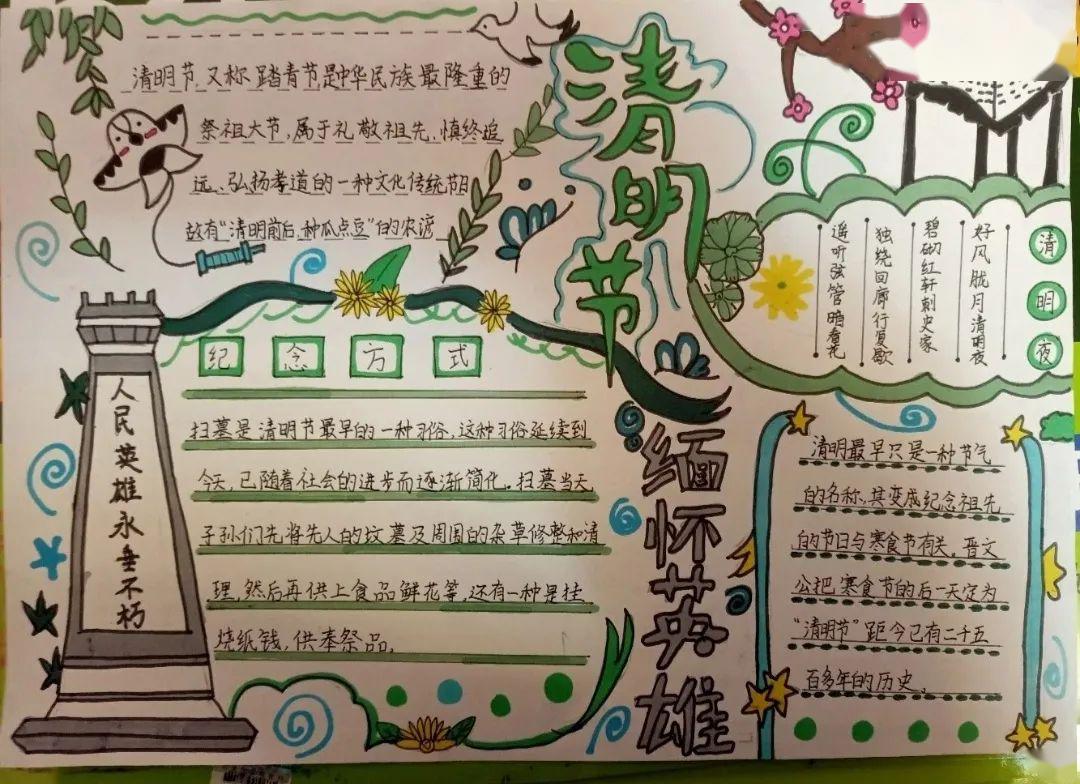 清明节,又称踏青节,是中华民族最隆重的
祭祖大节,属于礼敬祖先、慎终追
远、弘扬孝道的一种文化传统节日
故有“清明前后,种瓜点豆”的农谚
清明节
缅怀英雄
清明夜
好风胧月清明夜
碧砌红轩刺史家
独绕回廊行复歇
遥听弦管暗看花
纪念方式
扫墓是清明节最早的一种习俗,这种习俗延续到
今天,已随着社会的进步而逐渐简化。扫墓当天,
子孙们先将先人的坟墓及周围的杂草修整和清
理,然后再供上食品鲜花等,还有一种是挂
烧纸钱,供奉祭品。
人民英雄永垂不朽
清明最早只是一种节气
的名称,其变成纪念祖先
的节日与寒食节有关。晋文
公把寒食节的后一天定为
“清明节”距今已有二千五
百多年的历史。